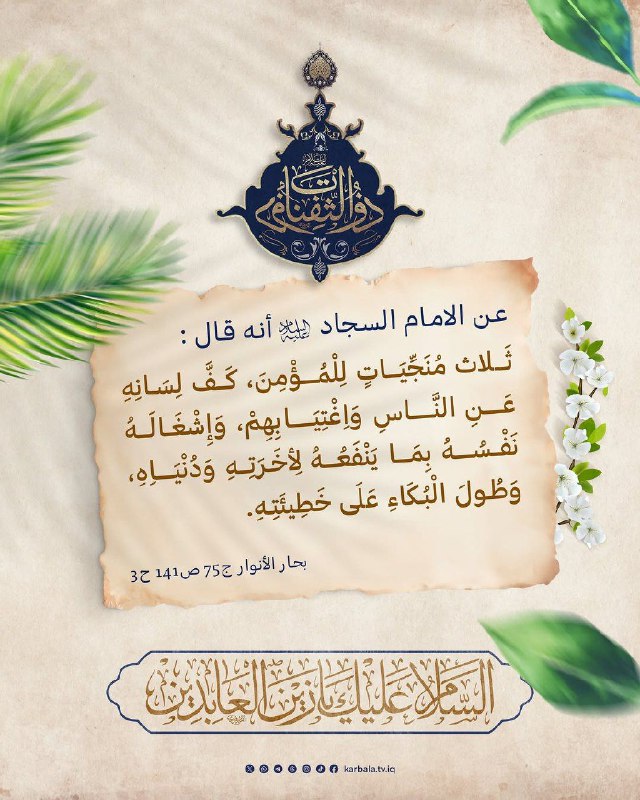 ذو الثفنات
عن الامام السجاد عليه السلام أنه قال :
ثَلاث مُنَجِّيَاتٍ لِلْمُؤْمِنَ، كَفَّ لِسَانِهِ
عَنِ النَّاسِ وَاِغْتِيَابِهِمْ، وَإِشْغَالَهُ
نَفْسُهُ بِمَا يَنْفَعُهُ لِأخَرَتِهِ وَدُنْيَاهِ،
وَطُولَ الْبُكَاءِ عَلَى خَطِيئَتِهِ.
بحار الأنوار ج75 ص141 ح3
السَّلَامُ عَلَيْكَ يَا زَيْنَ الْعَابِدِينَ
karbala.tv.iq